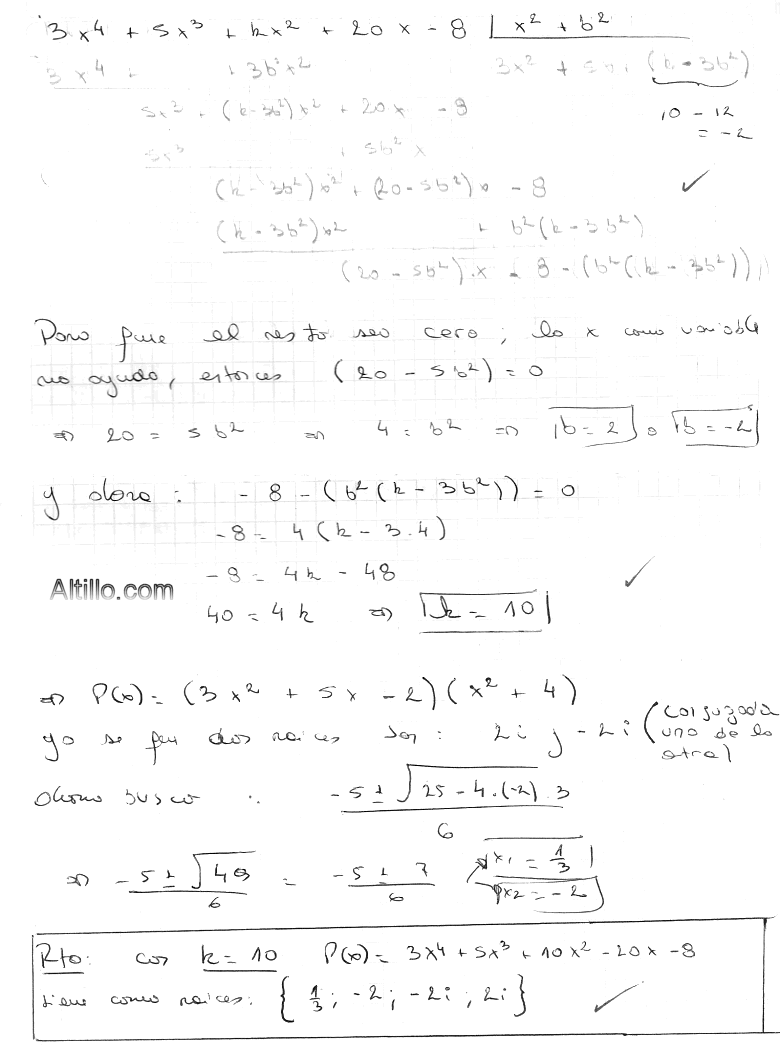 3x⁴ + 5x³ + kx² + 20x - 8 | x² + b²
3x⁴ + + 3b²x² 3x² + 5x + (k - 3b²)
5x³ + (k-3b²)x² + 20x - 8 10 - 12
5x³ + 5b²x = -2
(k - 3b²)x² + (20 - 5b²)x - 8
(k - 3b²)x² + b²(k - 3b²)
(20 - 5b²).x - 8 - (b²(k - 3b²))
Para que el resto sea cero, la x como variable
no ayuda, entonces (20 - 5b²) = 0
⇒ 20 = 5b² ⇒ 4 = b² ⇒ b = 2 o b = -2
y ahora: - 8 - (b²(k - 3b²)) = 0
-8 = 4(k - 3.4)
-8 = 4k - 48
Altillo.com
40 = 4k ⇒ k = 10
⇒ P(x) = (3x² + 5x - 2)(x² + 4)
ya se que dos raices son: 2i y -2i (conjugada
uno de la
otra)
Ahora busco ∴ -5 ± √25 - 4.(-2).3
6
⇒ -5 ± √49 = -5 ± 7 x₁ = 1/3
6 6 x₂ = -2
Rta: con k = 10 P(x) = 3x⁴ + 5x³ + 10x² - 20x - 8
tiene como raices: { 1/3 ; -2 ; -2i ; 2i }